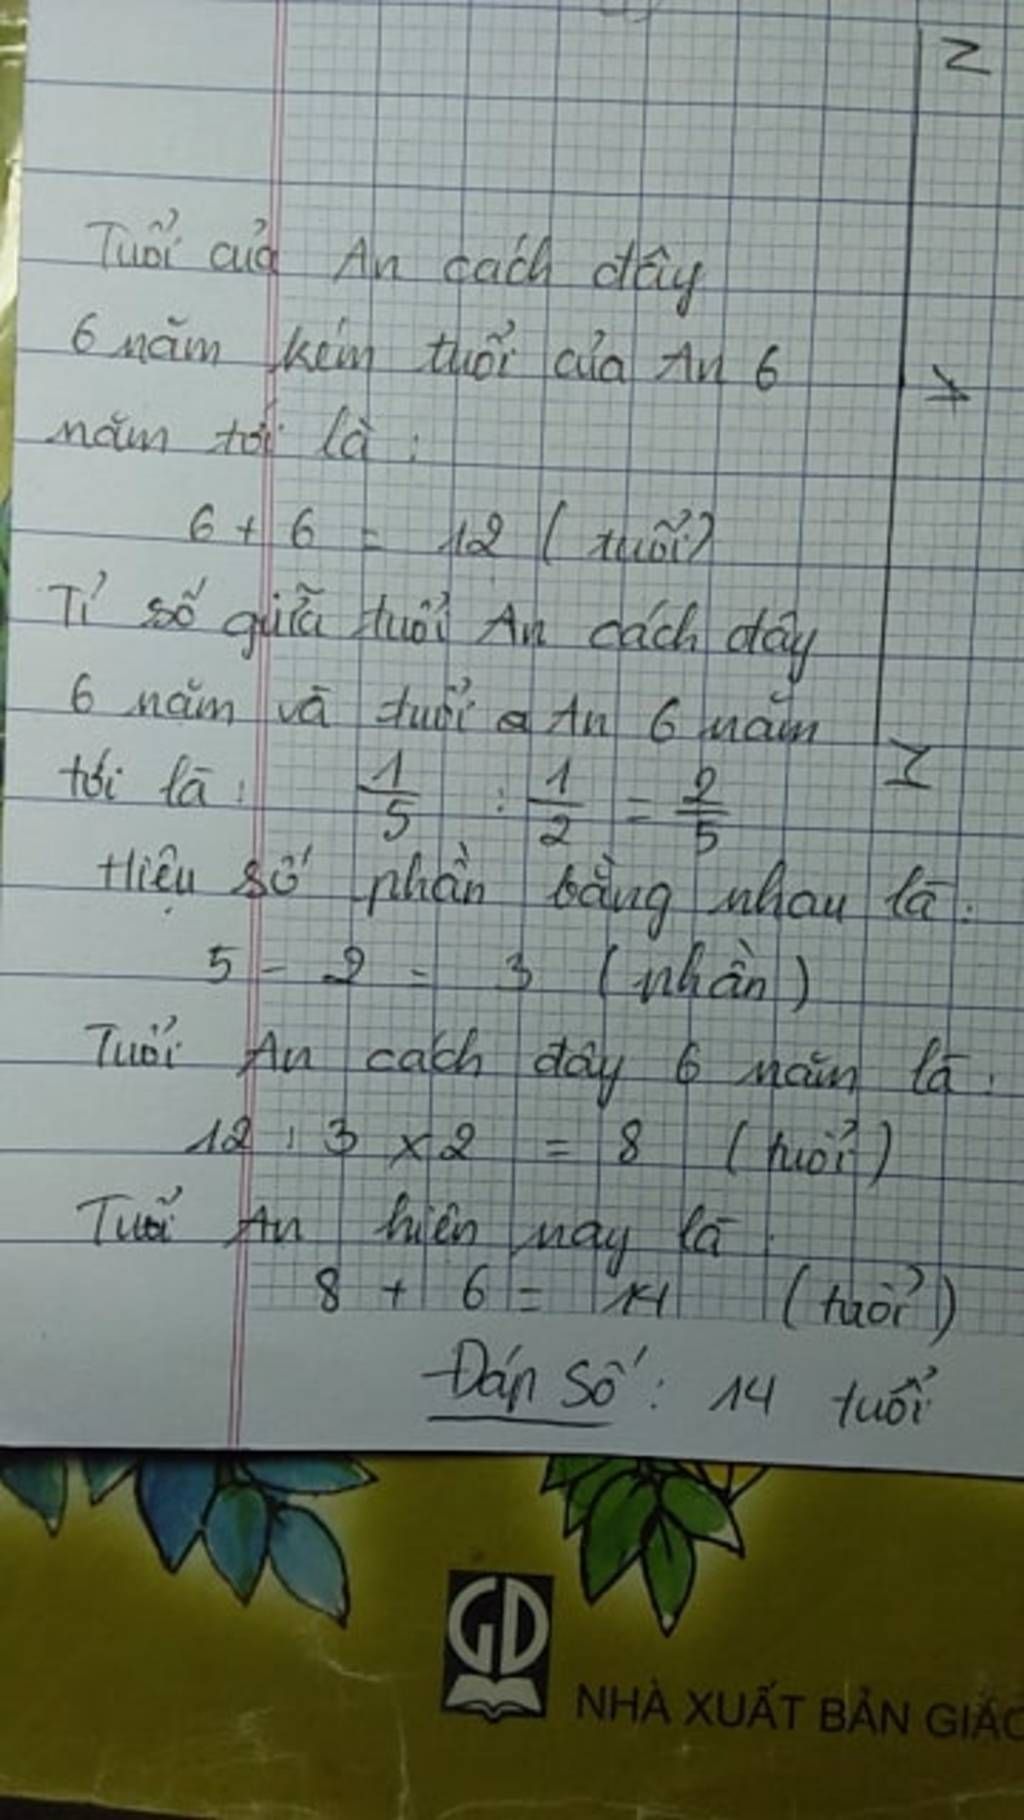 Tuổi của An cách đây
6 năm kém tuổi của An 6
năm tới là:
6 + 6 = 12 (tuổi)
Tỉ số giữa tuổi An cách đây
6 năm và tuổi An 6 năm
tới là: 1/5 : 1/2 = 2/5
Hiệu số phần bằng nhau là:
5 - 2 = 3 (phần)
Tuổi An cách đây 6 năm là:
12 : 3 x 2 = 8 (tuổi)
Tuổi An hiện nay là:
8 + 6 = 14 (tuổi)
Đáp số: 14 tuổi
GD
NHÀ XUẤT BẢN GIÁO